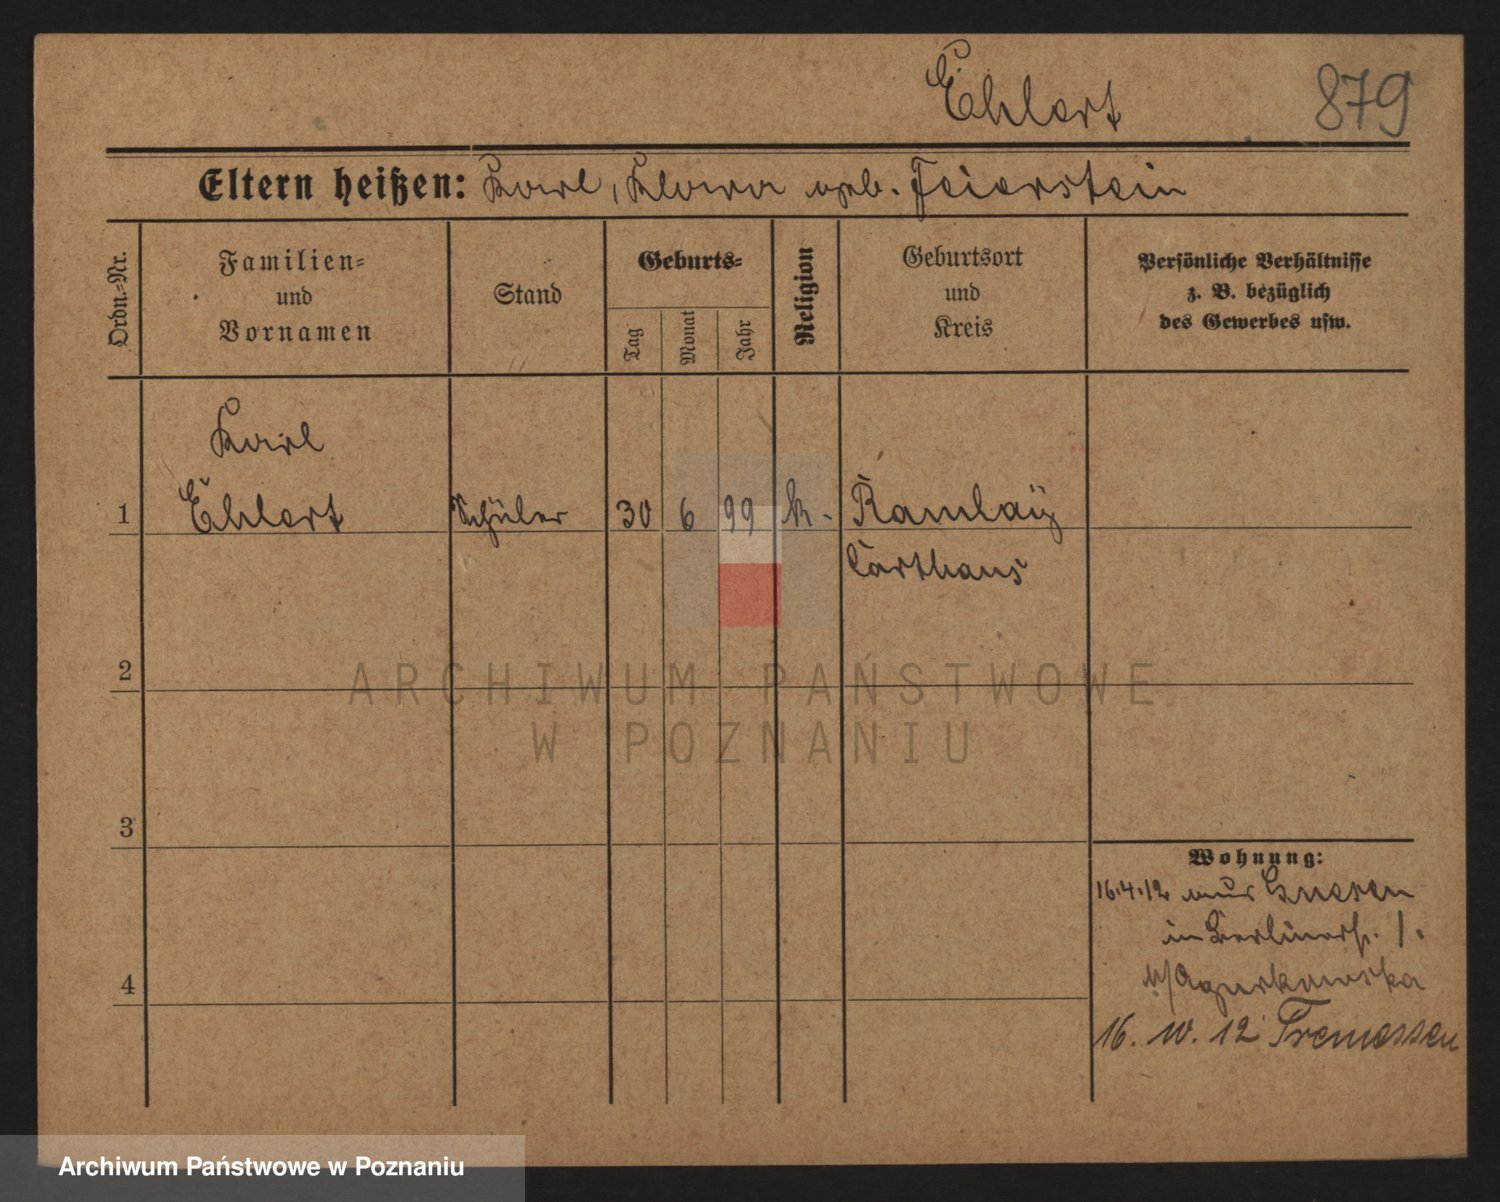 Ehlert
879
Eltern heißen: Karl, Klara geb. Feierstein
Ordn.-Nr.
Familien-
und
Vornamen
Stand
Geburts-
Tag
Monat
Jahr
Religion
Geburtsort
und
Kreis
Persönliche Verhältnisse
z. B. bezüglich
des Gewerbes usw.
Karl
1 Ehlert Schüler 30 6 99 k. Ramlau
Carthaus
2
ARCHIWUM PAŃSTWOWE
W POZNANIU
3
Wohnung:
16.4.12 aus Gnesen
in Berlinerst. 1.
4
16. 10. 12 Tremessen
Archiwum Państwowe w Poznaniu